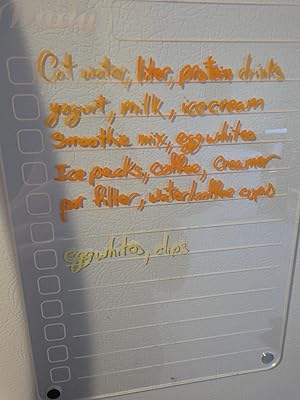 Cat water, liter, protein drinks
yogurt, milk, icecream
smoothie mix, egg whites
Ice packs, coffee, Creamer
pur filter, water/coffee cups
egg whites, chips